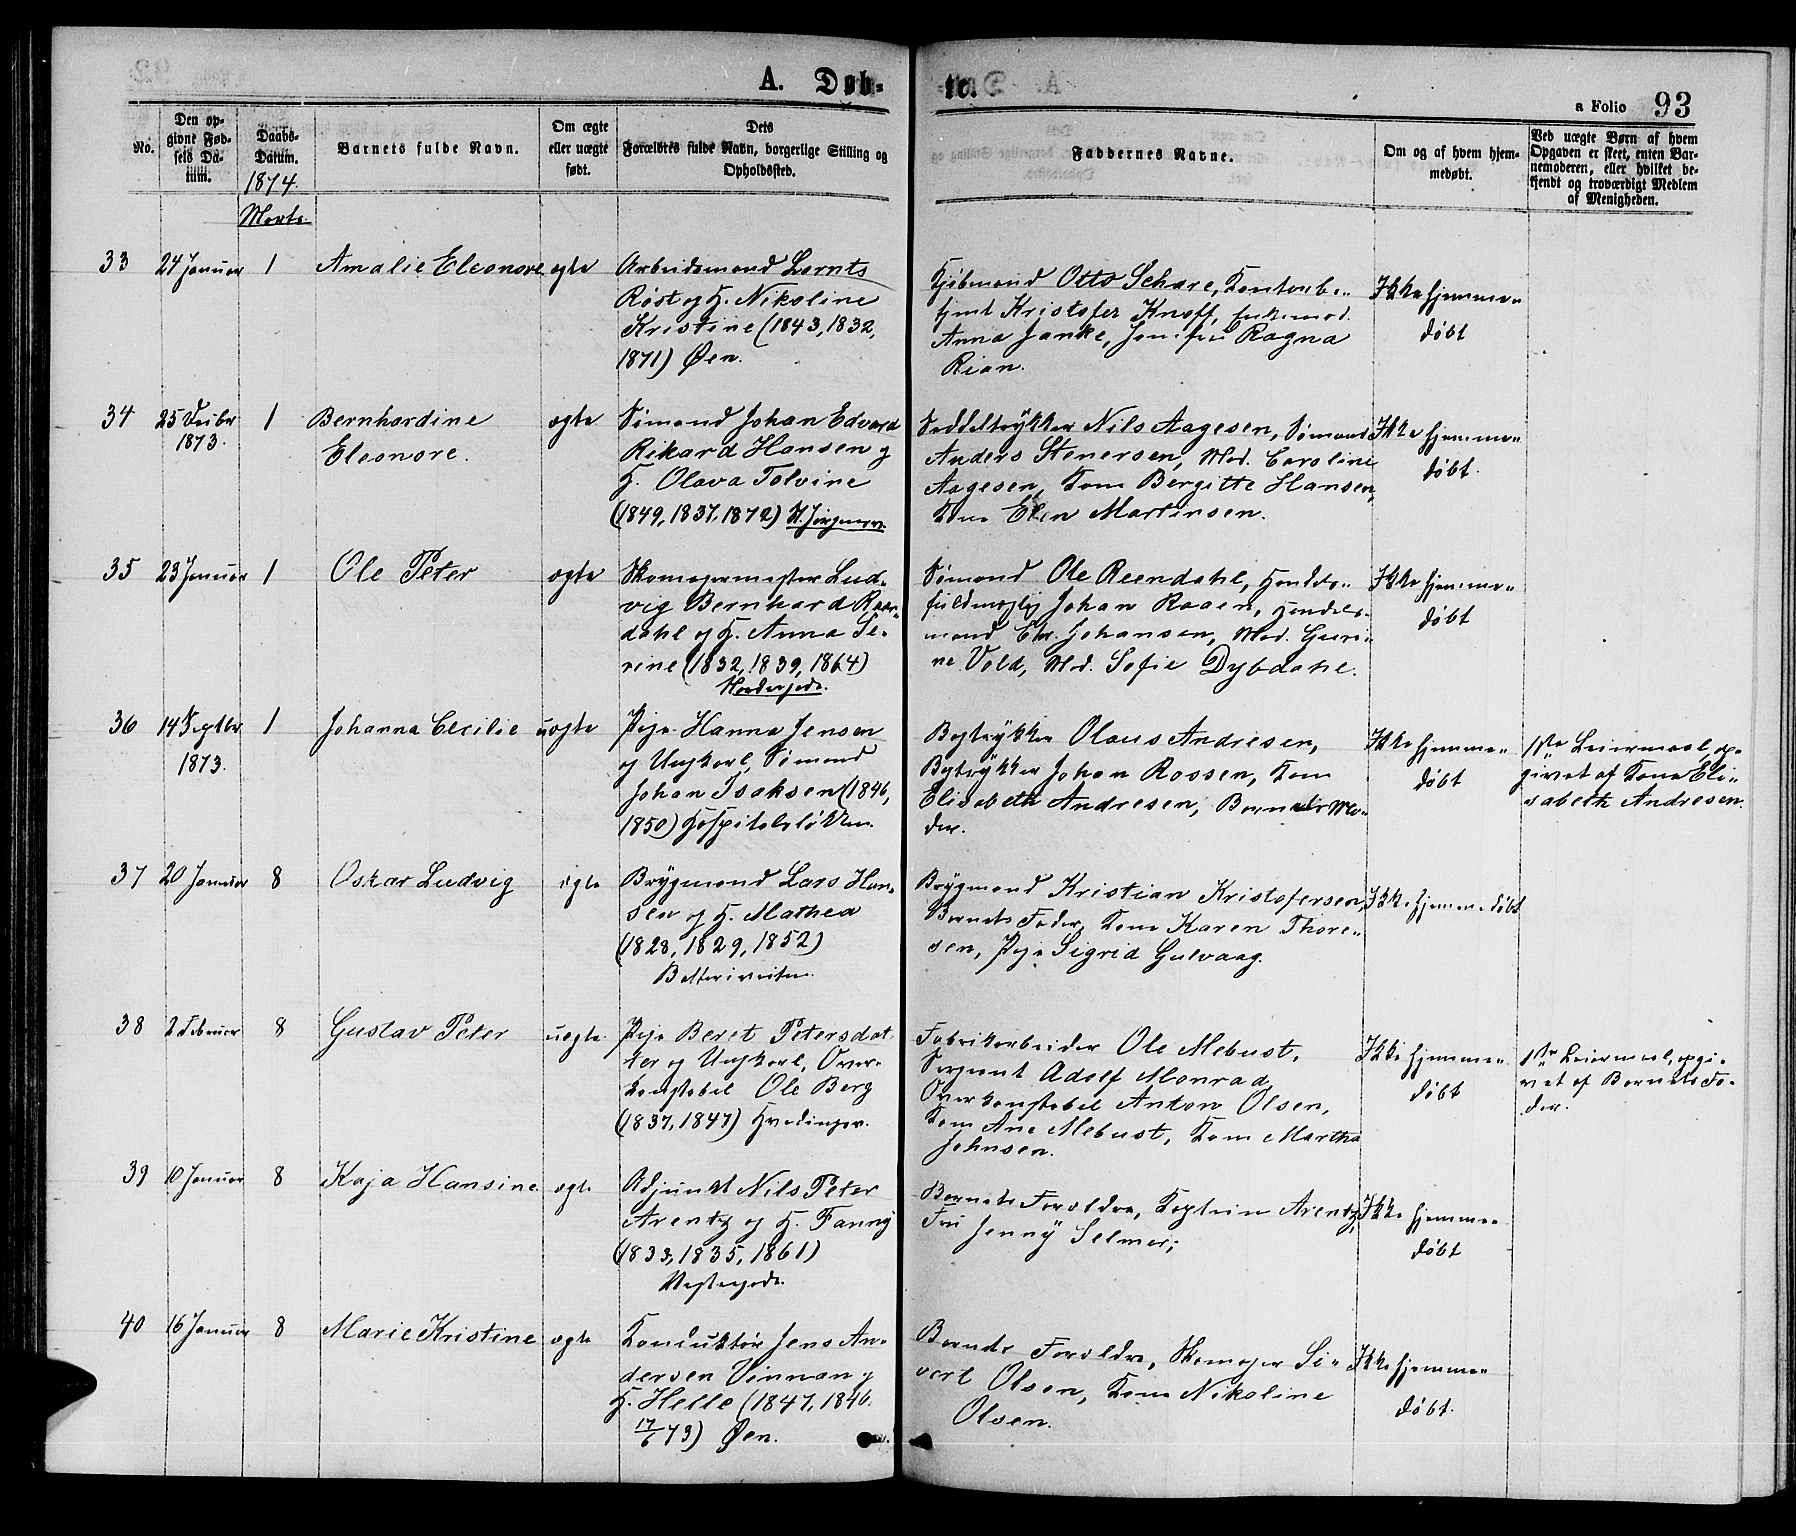 A. Døb-
te.
a Folio 93
No.
Den op-
givne Fød-
sels Da-
tum.
Daabs-
Datum.
1874.
Barnets fulde Navn.
Om ægte
eller uægte
født.
Dets
Forældres fulde Navn, borgerlige Stilling og
Opholdssted.
Faddernes Navne.
Om og af hvem hjem-
medøbt.
Ved uægte Børn af hvem
Opgaven er skeet, enten Bar-
nemoderen, eller hvilket be-
kjendt og troværdigt Medlem
af Menigheden.
Marts
33 24 Januar 1 Amalie Eleonore ægte
Arbeidsmand Lornts
Røst og H. Nikoline
Kristine (1843, 1832,
1871) Øen.
Kjøbmand Otto Schare, Kontorbe-
tjent Kristofer Knoff,
Anna Janke, Ragna
Rian.
Ikke hjemme-
døbt
34 25 Decbr
1873.
1 Bernhardine
Eleonore.
ægte
Sømand Johan Edvard
Rikard Hansen og
H. Olava Tolvine
(1849, 1837, 1872)
Nils Aagesen, Sømand
Anders Stenersen, Mad. Caroline
Aagesen, Kone Bergitte Hansen,
Kone Elen Martinsen.
Ikke hjemme-
døbt.
35 23 Januar 1 Ole Peter ægte
Skomagermester Lud-
vig Bernhard Reen-
dahl og H. Anna Se-
rine (1832, 1839, 1864)
Nordregade.
Sømand Ole Reendahl, Handels-
fuldmægtig Johan Raaen, Handels-
mand Chr. Johansen, Mad. Guri-
ne Vold, Mad. Sofie Dybdahl.
Ikke hjemme-
døbt
36 14 Septbr
1873.
1 Johanna Cecilie uægte
Pige Hanna Jensen
og Ungkarl, Sømand
Johan Isaksen (1846,
1850) Hospitalsløkken.
Bogtrykker Olaus Andresen,
Bogtrykker Johan Rossen, Kone
Elisabeth Andresen, Barnets Mo-
der.
Ikke hjemme-
døbt
1ste Leiermaal, op-
givet af Kone Eli-
sabeth Andresen.
37 20 Januar 8 Oskar Ludvig ægte
Brygmand Lars Han-
sen og H. Mathea
(1828, 1829, 1852)
Batteriveiten.
Brygmand Kristian Kristofersen,
Barnets Fader, Kone Karen Thore-
sen, Pige Sigrid Gulvaag.
Ikke hjemmedøbt
38 2 Februar 8 Gustav Peter uægte
Pige Beret Petersdat-
ter og Ungkarl, Over-
konstabel Ole Berg
(1837, 1847)
Fabrikarbeider Ole Mebust,
Sergeant Adolf Monrad,
Overkonstabel Anton Olsen,
Kone Ane Mebust, Kone Martha
Johnsen.
Ikke hjemme-
døbt
1ste Leiermaal, opgi-
vet af Barnets Fa-
der.
39 10 Januar 8 Kaja Hansine ægte
Adjunkt Nils Peter
Arentz og H. Fanny
(1833, 1835, 1861)
Vestergade.
Barnets Forældre, Kaptein Arentz,
Fru Jenny Selmer;
Ikke hjemme-
døbt
40 16 Januar 8 Marie Kristine ægte
Konduktør Jens An-
dersen Vinnan og
H. Helle (1847, 1846.
17/6 73) Øen.
Barnets Forældre, Skomager Si-
vert Olsen, Kone Nikoline
Olsen.
Ikke hjemme-
døbt.